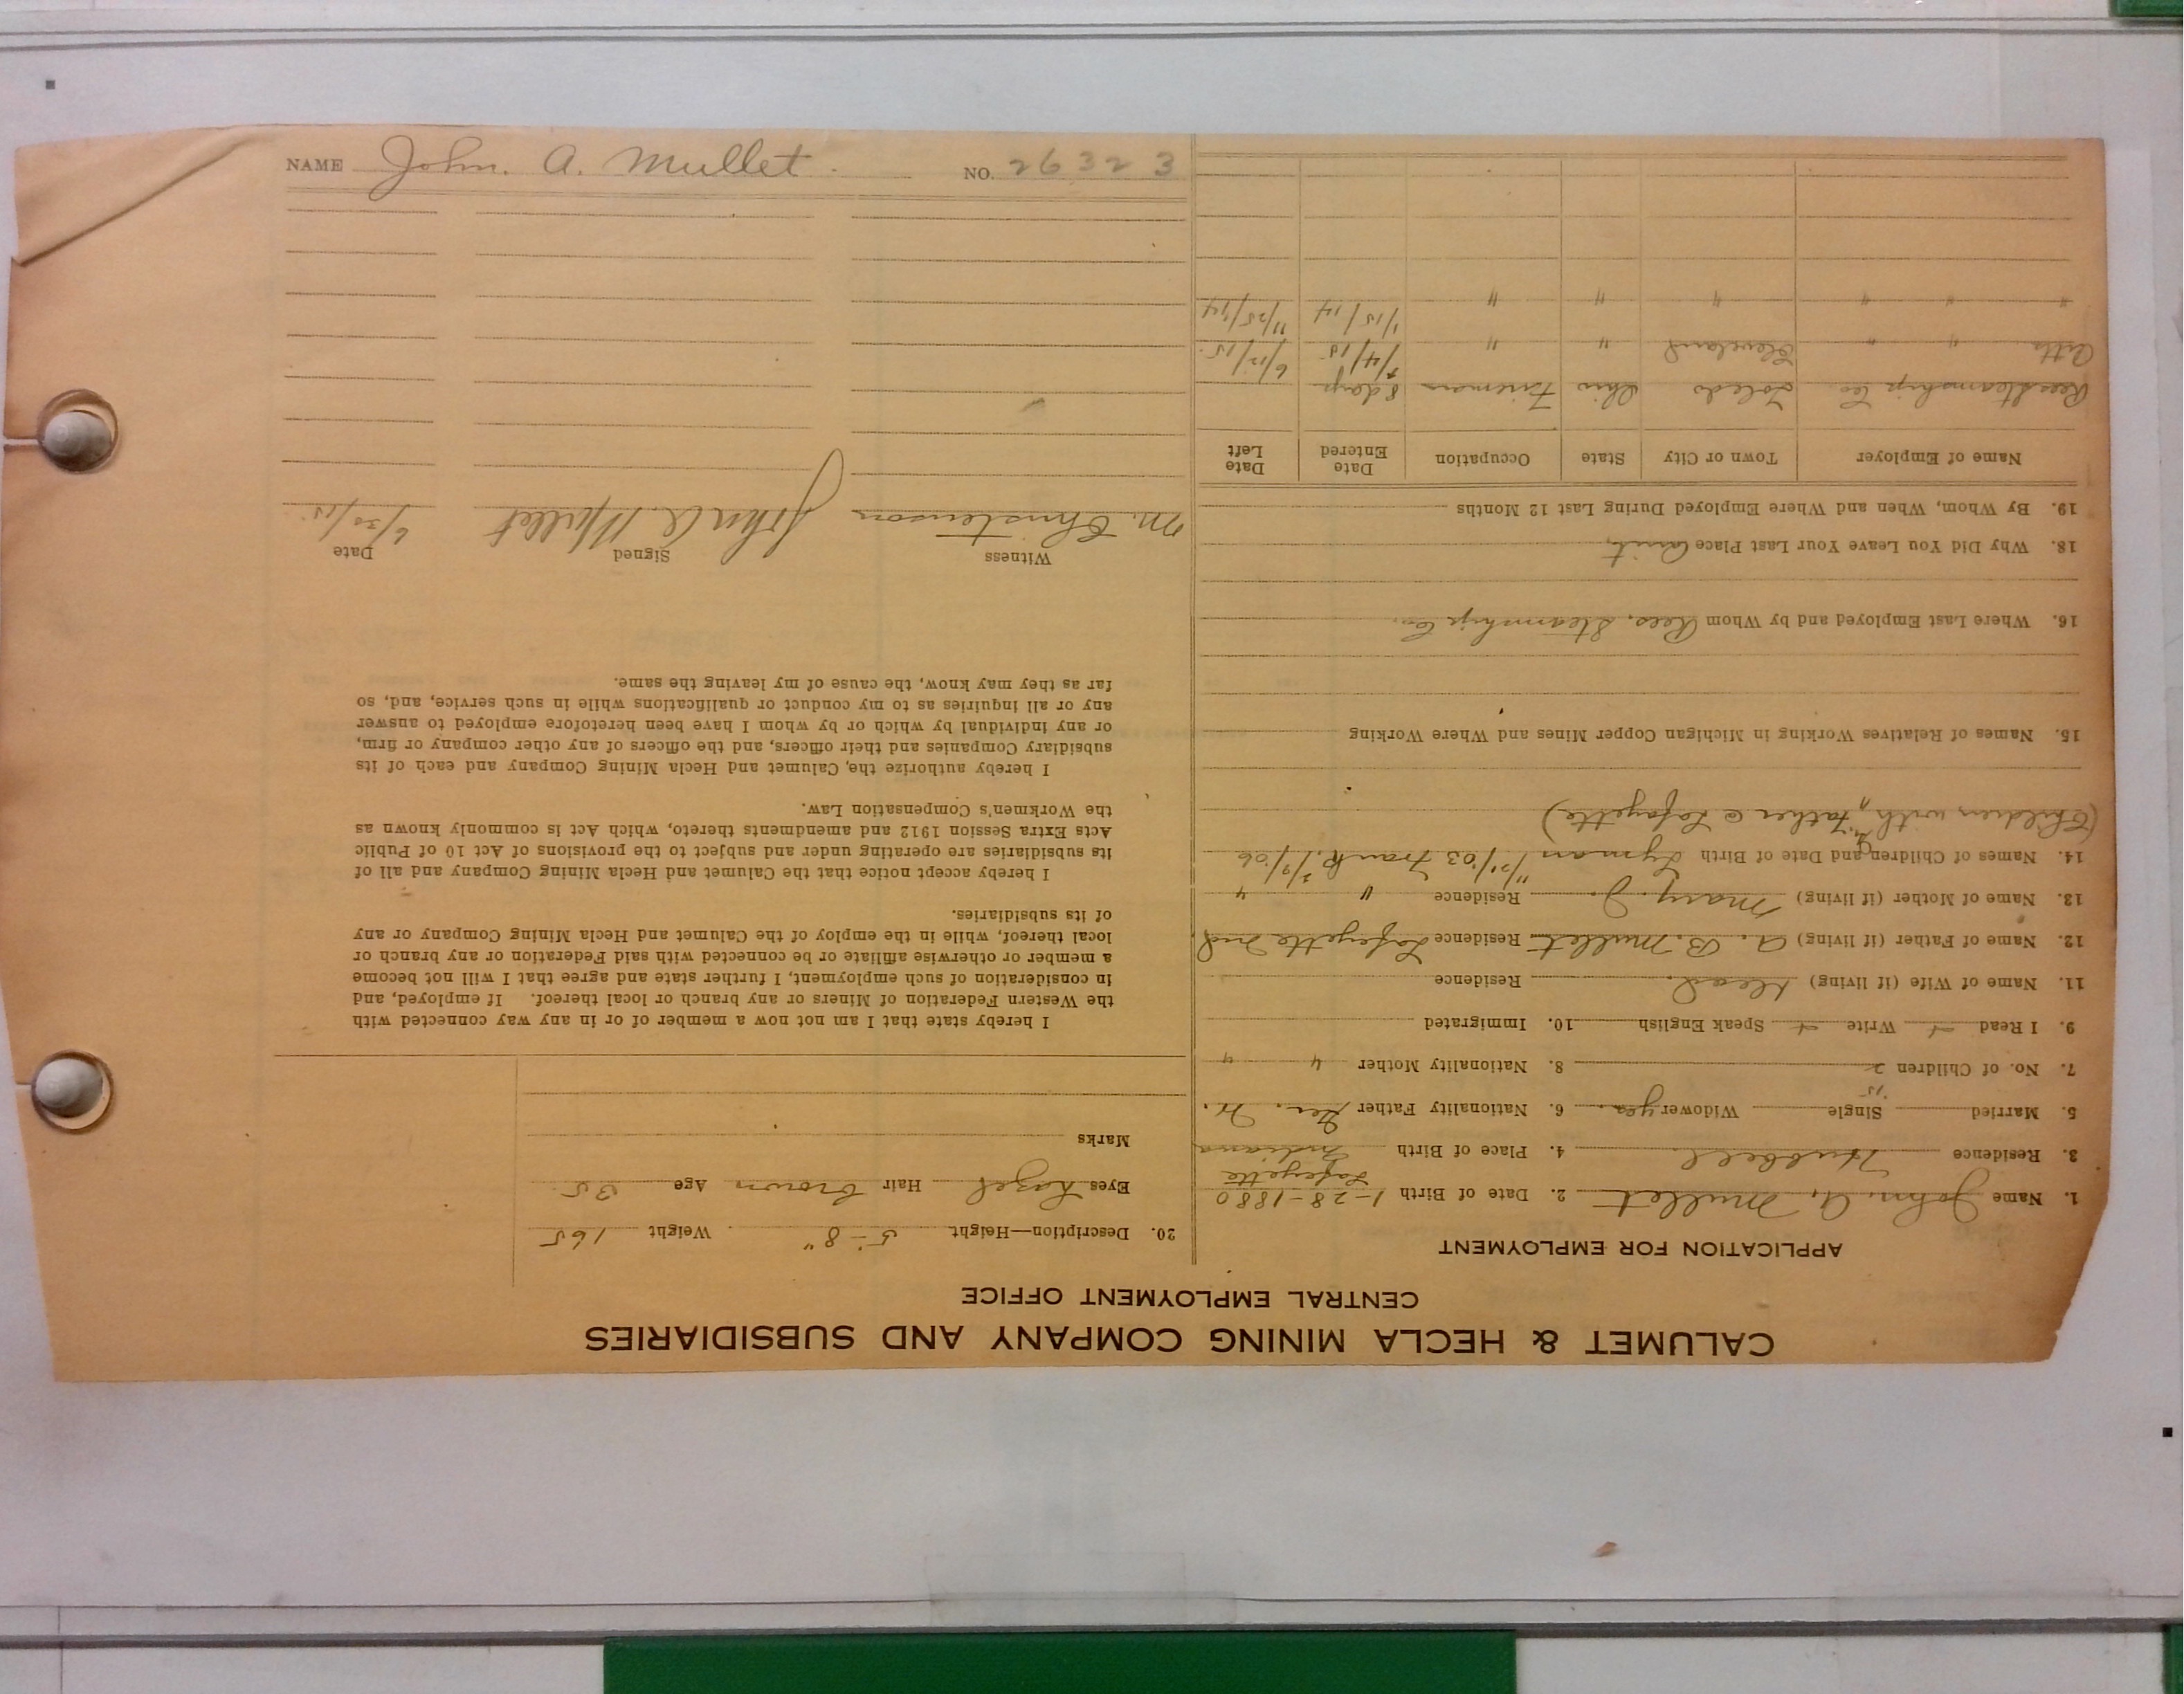 NAME John. A. Mullet. NO. 26323
CALUMET & HECLA MINING COMPANY AND SUBSIDIARIES
CENTRAL EMPLOYMENT OFFICE
APPLICATION FOR EMPLOYMENT
1. Name John. A. Mullet 2. Date of Birth 1-28-1880
Lafayette
3. Residence Hubbell. 4. Place of Birth Indiana
5. Married Single Widower yes. 6. Nationality Father Ger.
'15
7. No. of Children 2 8. Nationality Mother " "
9. I Read Write Speak English 10. Immigrated
11. Name of Wife (if living) Dead. Residence
12. Name of Father (if living) A. B. Mullet Residence Lafayette Ind.
13. Name of Mother (if living) Mary. J. Residence " "
14. Names of Children and Date of Birth Lyman 11/21/03 Frank.
(Children with my father @ Lafayette)
15. Names of Relatives Working in Michigan Copper Mines and Where Working
16. Where Last Employed and by Whom Rees. Steamship Co.
18. Why Did You Leave Your Last Place Quit.
19. By Whom, When and Where Employed During Last 12 Months
Name of Employer Town or City State Occupation Date Entered Date Left
Rees Steamship Co Toledo Ohio Fireman 8 days
" " Cleveland " " 6/12/15.
" " " " " " 1/15/14 11/25/14
20. Description—Height 5'-8" Weight 165
Eyes hazel Hair brown Age 35.
Marks
I hereby state that I am not now a member of or in any way connected with
the Western Federation of Miners or any branch or local thereof. If employed, and
in consideration of such employment, I further state and agree that I will not become
a member or otherwise affiliate or be connected with said Federation or any branch or
local thereof, while in the employ of the Calumet and Hecla Mining Company or any
of its subsidiaries.
I hereby accept notice that the Calumet and Hecla Mining Company and all of
its subsidiaries are operating under and subject to the provisions of Act 10 of Public
Acts Extra Session 1912 and amendments thereto, which Act is commonly known as
the Workmen's Compensation Law.
I hereby authorize the, Calumet and Hecla Mining Company and each of its
subsidiary Companies and their officers, and the officers of any other company or firm,
or any individual by which or by whom I have been heretofore employed to answer
any or all inquiries as to my conduct or qualifications while in such service, and, so
far as they may know, the cause of my leaving the same.
Witness Signed Date
M. Christenson John A. Mullet 6/30/15.